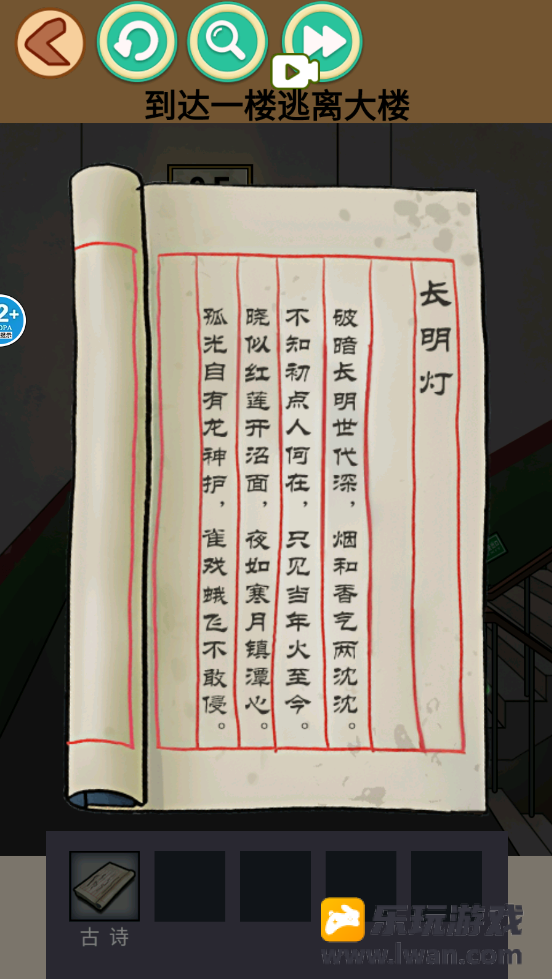 到达一楼逃离大楼
长明灯
破暗长明世代深，烟和香气两沈沈。
不知初点人何在，只见当年火至今。
晓似红莲开沼面，夜如寒月镇潭心。
孤光自有龙神护，雀戏蛾飞不敢侵。
古诗
乐玩游戏
www.lwan.com